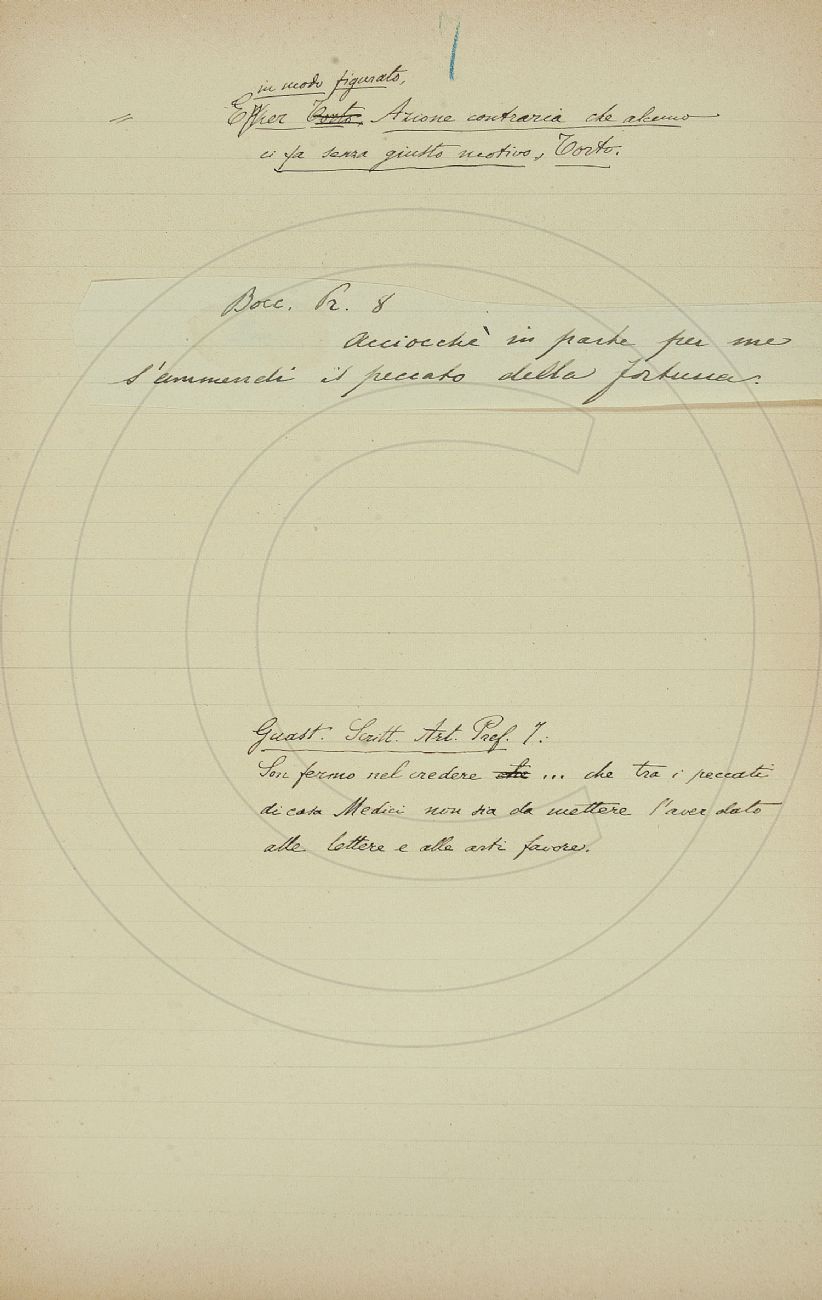 in modo figurato,
" E per Torto, Azione contraria che alcuno
ci fa senza giusto motivo, Torto.
Bocc. Pr. 8
Acciocchè in parte per me
s'ammendi il peccato della fortuna.
Guast. Scritt. Art. Pref. 7:
Son fermo nel credere che ... che tra i peccati
di casa Medici non sia da mettere l'aver dato
alle lettere e alle arti favore.